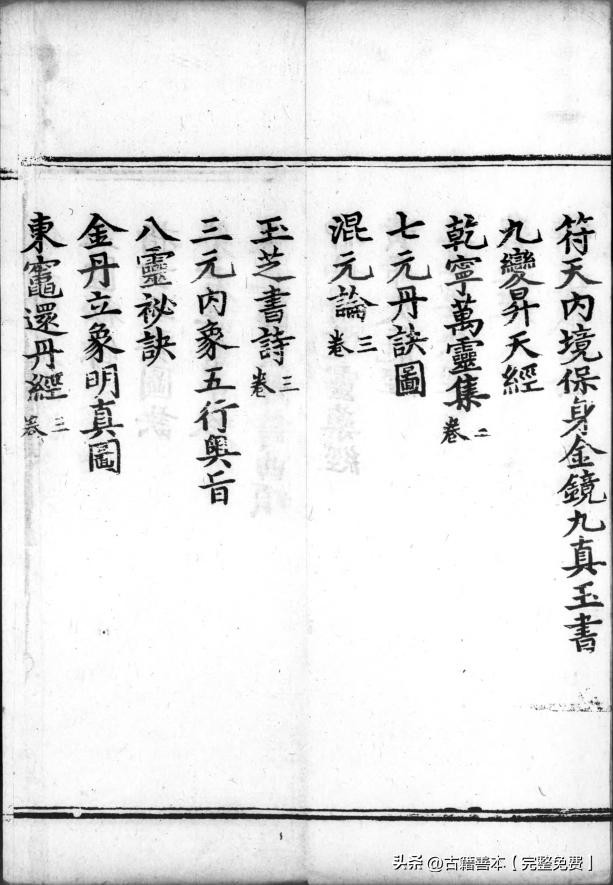 符天內境保身金鏡九真玉書
九變昇天經
乾寧萬靈集二卷
七元丹訣圖
混元論三卷
玉芝書詩三卷
三元內象五行奧旨
八靈祕訣
金丹立象明真圖
東竈還丹經三卷
头条 @古籍善本【完整免费】